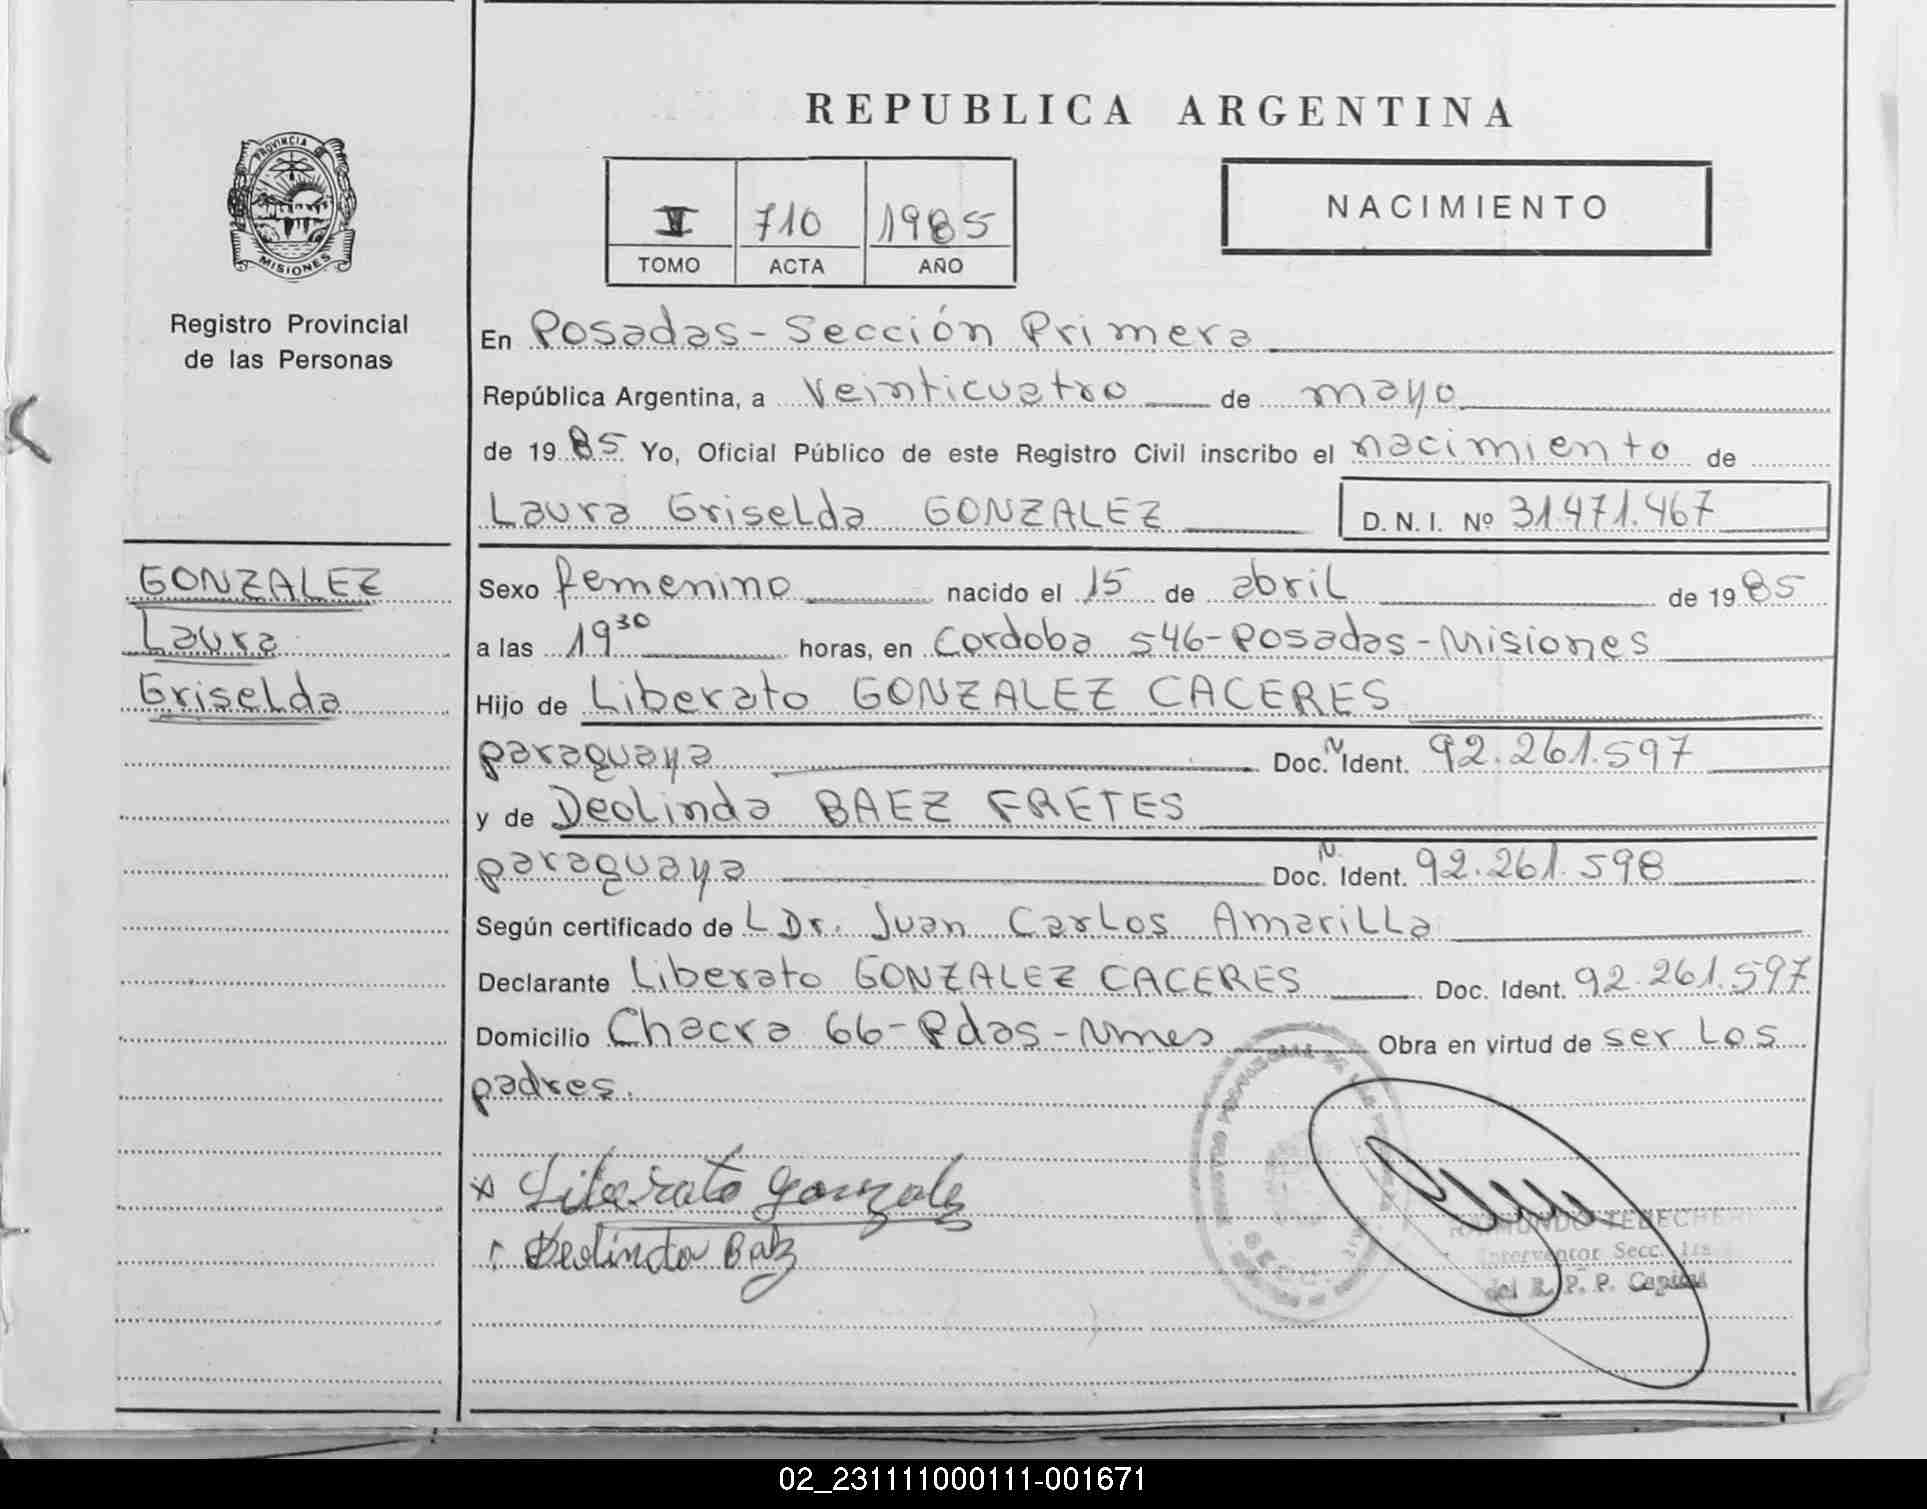 REPUBLICA ARGENTINA
PROVINCIA DE
MISIONES
Registro Provincial
de las Personas
710 1985
TOMO ACTA AÑO
NACIMIENTO
En Posadas - Sección Primera
República Argentina, a Veinticuatro de mayo
de 1985 Yo, Oficial Público de este Registro Civil inscribo el nacimiento de
Laura Griselda GONZALEZ D.N.I. Nº 31.471.467
GONZALEZ
Laura
Griselda
Sexo femenino nacido el 15 de abril de 1985
a las 19 30 horas, en Cordoba 546-Posadas-Misiones
Hijo de Liberato GONZALEZ CACERES
paraguaya Doc. N Ident. 92.261.597
y de Deolinda BAEZ FRETES
paraguaya Doc. N. Ident. 92.261.598
Según certificado de L Dr. Juan Carlos Amarilla
Declarante Liberato GONZALEZ CACERES Doc. Ident. 92.261.597
Domicilio Chacra 66-Pdas-Mnes Obra en virtud de ser Los
padres.
x Liberato gonzalez
Deolinda Baez
RAIMUNDO
Interventor Secc. 1ra
del R. P. P. Capital
02_231111000111-001671